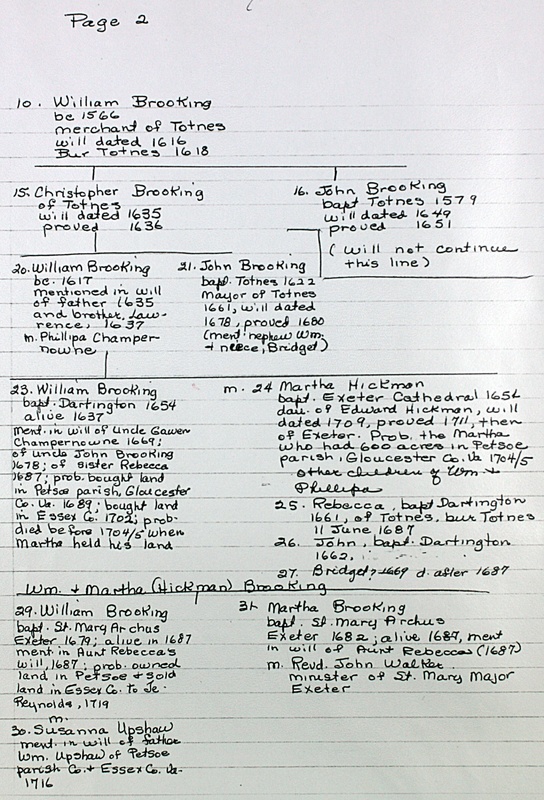 Page 2
10. William Brooking
be 1566
merchant of Totnes
will dated 1616
Bur Totnes 1618
15. Christopher Brooking
of Totnes
will dated 1635
proved 1636
16. John Brooking
bapt Totnes 1579
will dated 1649
proved 1651
(will not continue
this line)
20. William Brooking
be. 1617
mentioned in will
of father 1635
and brother, Law-
rence, 1637
m. Phillipa Champer-
nowne
21. John Brooking
bapt. Totnes 1622
Mayor of Totnes
1661, will dated
1678, proved 1680
(ment. nephew Wm.
+ neece, Bridget)
23. William Brooking
bapt. Dartington 1654
alive 1637
ment. in will of Uncle Gawen
Champernowne 1669;
of uncle John Brooking
1678; of sister Rebecca
1687; prob. bought land
in Petsoe parish, Gloucester
Co. Va. 1689; bought land
in Essex Co. 1702; prob.
died before 1704/5 when
Martha held his land
m. 24 Martha Hickman
bapt. Exeter Cathedral 1654
dau. of Edward Hickman, will
dated 1709, proved 1711, then
of Exeter. Prob. the Martha
who had 600 acres in Petsoe
parish, Gloucester Co. Va 1704/5
other children of Wm +
Phillipa
25. Rebecca, bapt Dartington
1661, of Totnes, bur Totnes
11 June 1687
26. John, bapt. Dartington
1662,
27. Bridget, ?1669 d. after 1687
Wm. + Martha (Hickman) Brooking
29. William Brooking
bapt. St. Mary Archus
Exeter 1679; alive in 1687
ment in Aunt Rebecca's
will, 1687; prob. owned
land in Petsoe + sold
land in Essex Co. to Je.
Reynolds, 1719
m.
30. Susanna Upshaw
ment. in will of father
Wm. Upshaw of Petsoe
parish Co. + Essex Co. Va.
1716
31. Martha Brooking
bapt. St. Mary Archus
Exeter 1682; alive 1687, ment
in will of Aunt Rebecca (1687)
m. Revd. John Walker
minister of St. Mary Major
Exeter